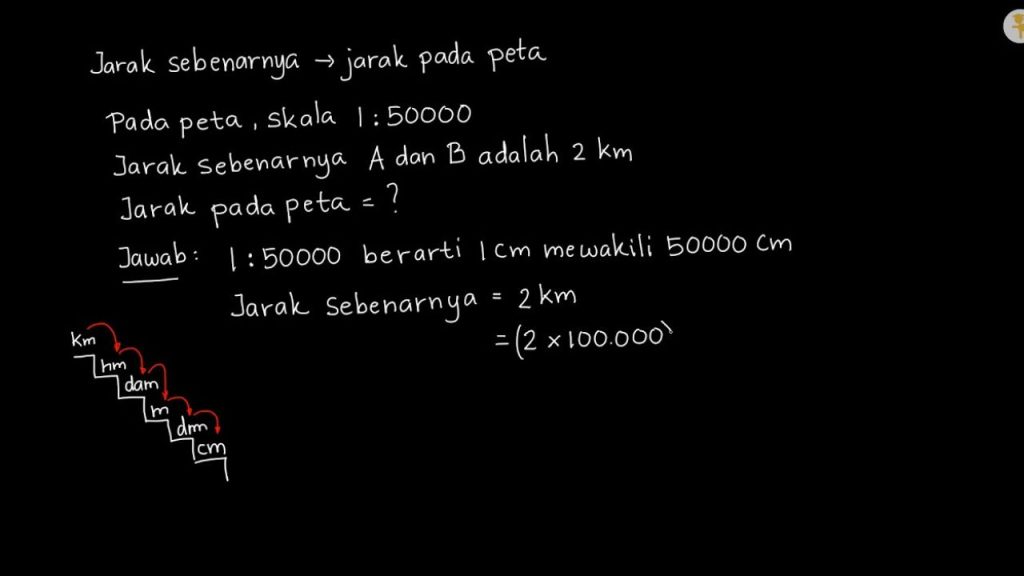 Jarak sebenarnya → jarak pada peta
Pada peta, skala 1 : 50000
Jarak sebenarnya A dan B adalah 2 km
Jarak pada peta = ?
Jawab : 1 : 50000 berarti 1 cm mewakili 50000 cm
Jarak sebenarnya = 2 km
= (2 × 100.000)
km
hm
dam
m
dm
cm